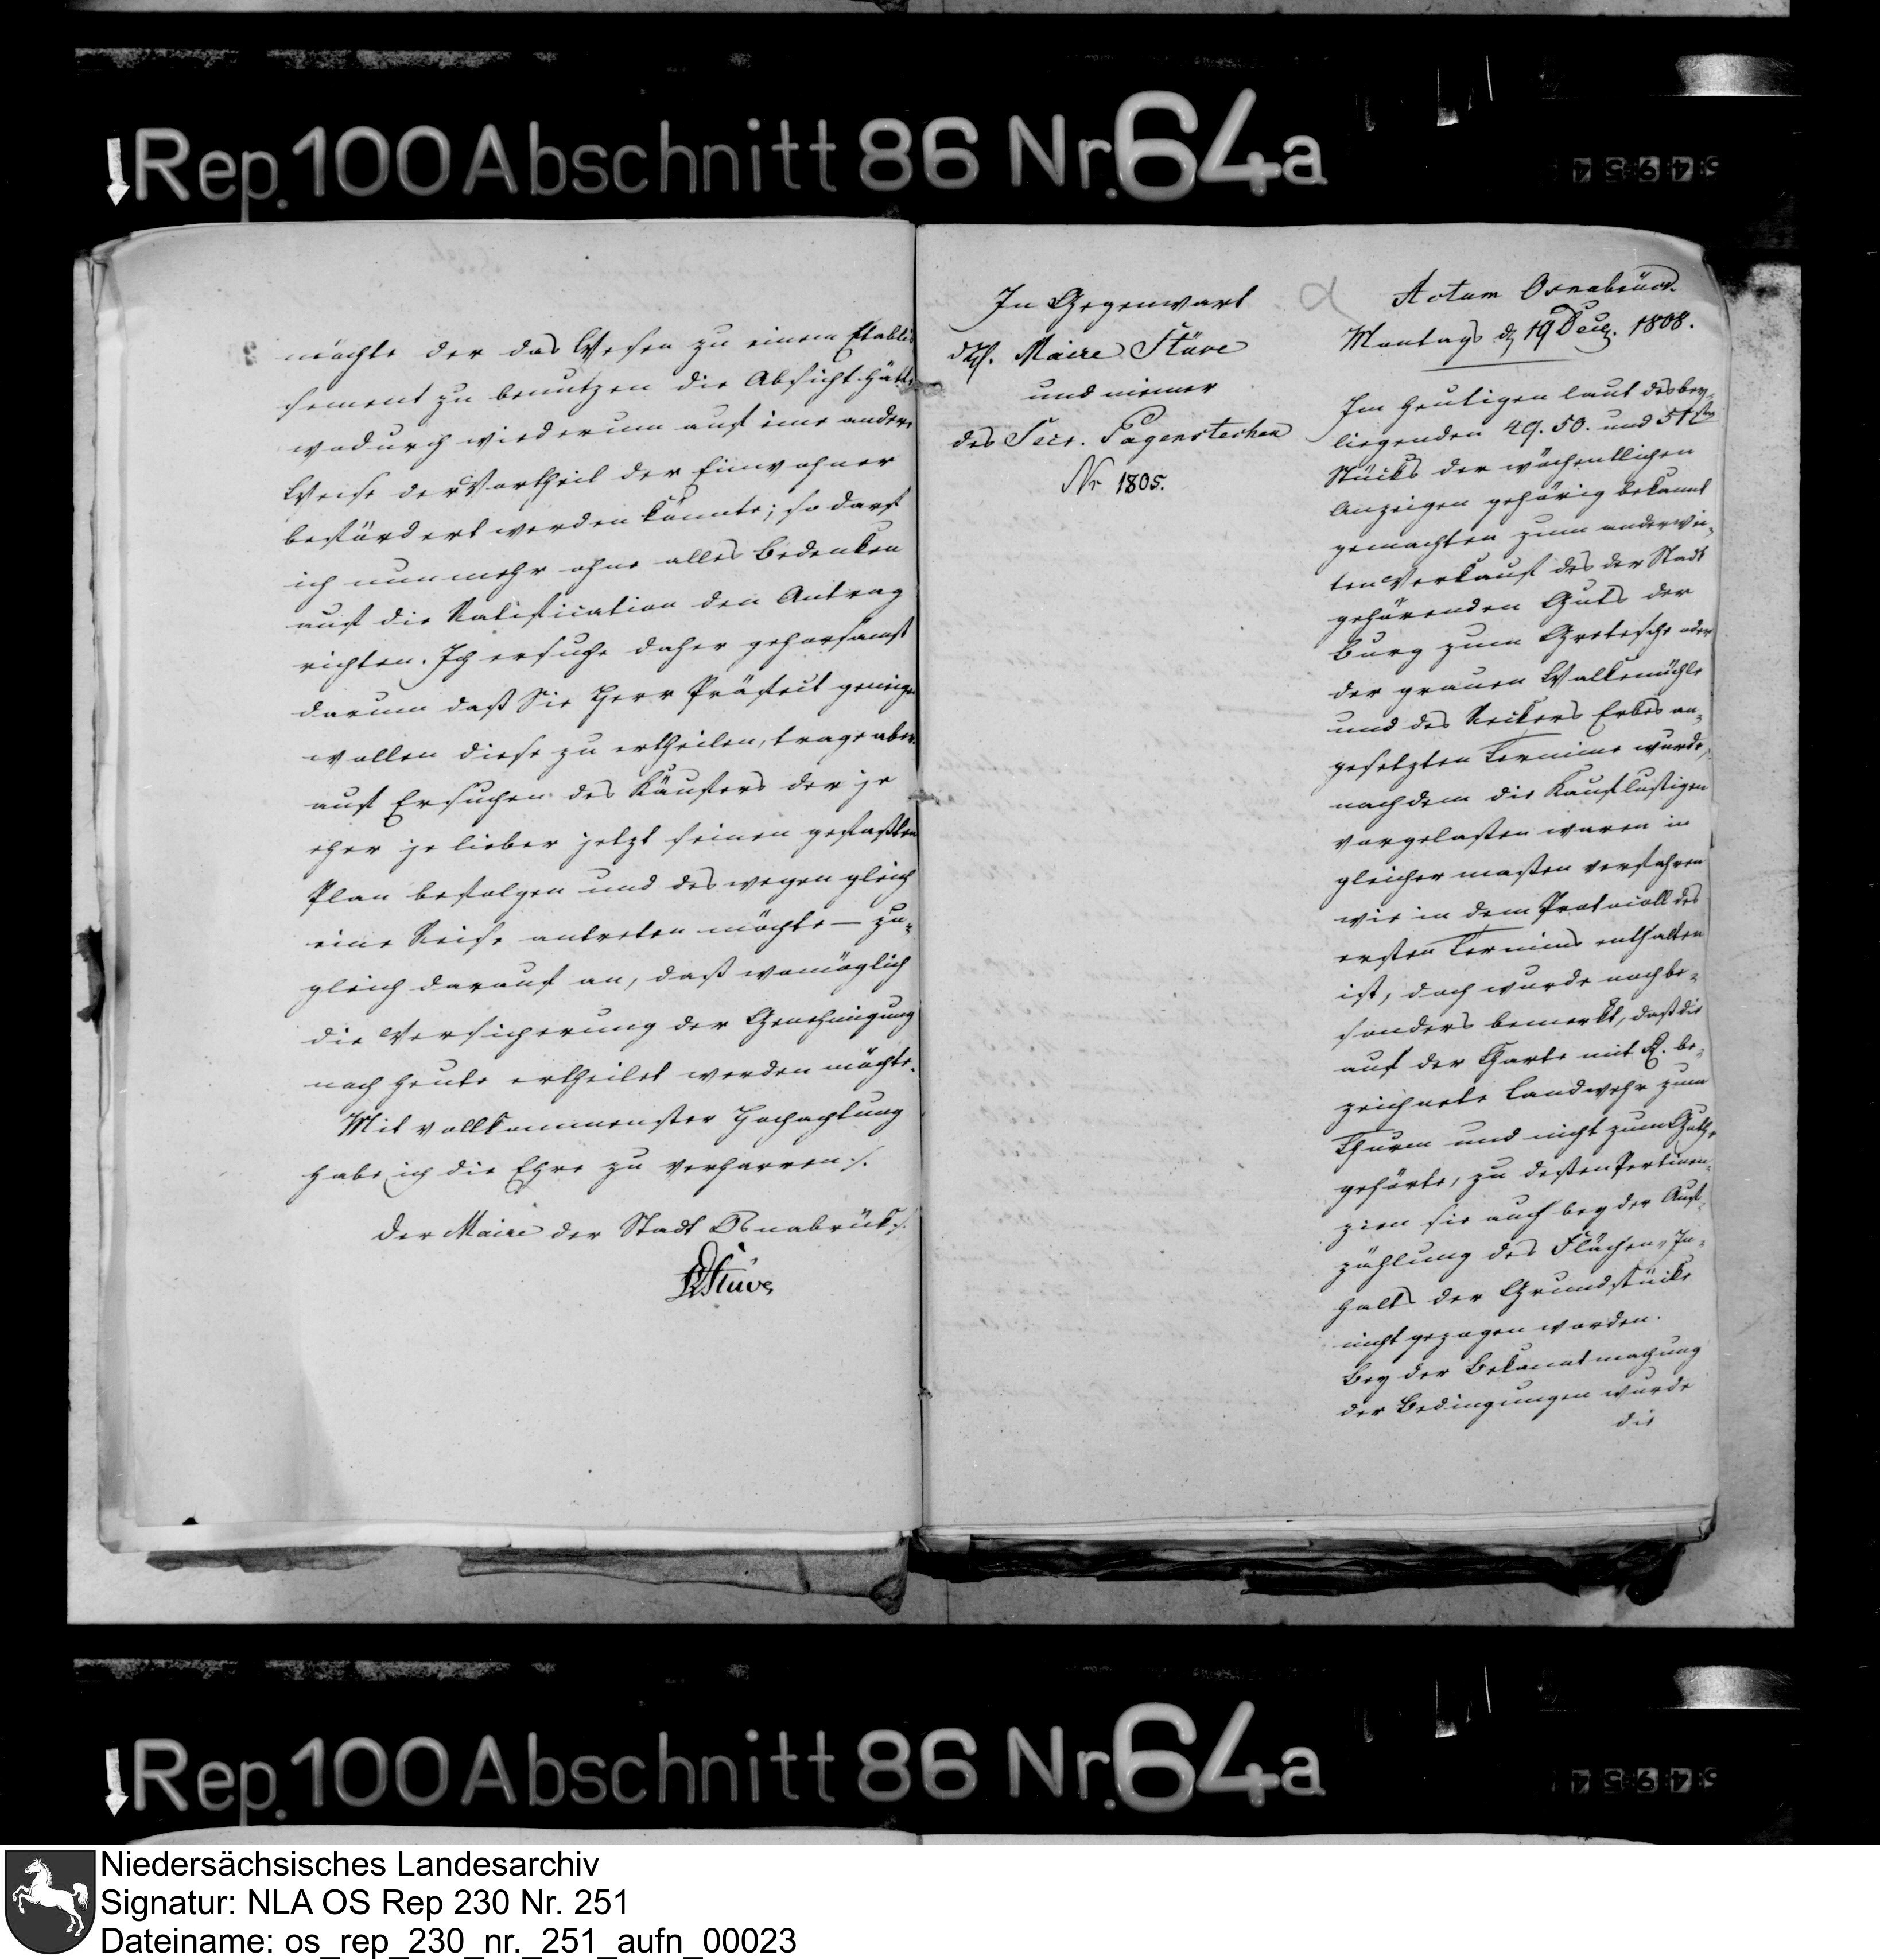 Rep. 100 Abschnitt 86 Nr. 64a
möchte der das Wesen zu einem Etablis
sement zu benutzen die Absicht hätte
wodurch wiederum auf eine andere
Weise der Vortheil der Einwohner
befördert werden könnte; so darf
ich nunmehr ohne alles Bedenken
auf die Ratification den Antrag
richten. Ich ersuche daher gehorsamst
darum daß Sie Herr Präfect geneigen
wollen diese zu ertheilen, trage aber
auf Ersuchen des Käufers der je
eher je lieber jetzt seinen gefaßten
Plan befolgen und deswegen gleich
eine Reise antreten möchte — zu-
gleich darauf an, daß womöglich
die Versicherung der Genehmigung
noch heute ertheilet werden möchte.
Mit vollkommenster Hochachtung
habe ich die Ehre zu verharren
der Maire der Stadt Osnabrük
Stüve
In Gegenwart
Maire Stüve
und meiner
des Secr. Pagenstecher
Nr 1805.
Actum Osnabrück
Montags d 19 Decz. 1808.
Im heutigen laut des bey-
liegenden 49. 50. und 51sten
Stücks der wöchentlichen
Anzeigen gehörig bekannt
gemachten zum anderwei-
ten Verkauf des der Stadt
gehörenden Guts der
Burg zum Gretesche oder
der grauen Walkemühle
und des Reckers Erbes an-
gesetzten Termine wurde,
nachdem die Kauflustigen
vorgelaßen waren in
gleicher maßen verfahren
wie in dem Protocoll des
ersten Termins enthalten
ist, doch wurde noch be-
sonders bemerkt, daß die
auf der Charte mit R. be-
zeichnete Landwehr zum
Thurm und nicht zum Guthe
gehörte, zu deßen Pertinen-
zien sie auch bey der Auf-
zählung des Flächen-In-
halts der Grundstücke
nicht gezogen worden.
Bey der Bekanntmachung
der Bedingungen wurde
die
Rep. 100 Abschnitt 86 Nr. 64a
Niedersächsisches Landesarchiv
Signatur: NLA OS Rep 230 Nr. 251
Dateiname: os_rep_230_nr._251_aufn_00023